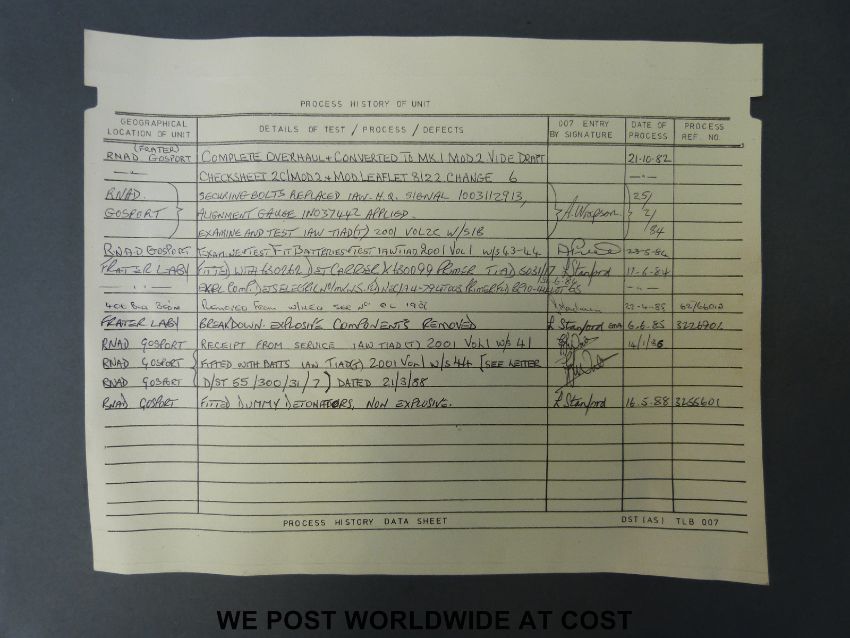 PROCESS HISTORY OF UNIT
GEOGRAPHICAL LOCATION OF UNIT DETAILS OF TEST / PROCESS / DEFECTS 007 ENTRY BY SIGNATURE DATE OF PROCESS PROCESS REF. NO.
(FRATER)
RNAD GOSPORT COMPLETE OVERHAUL + CONVERTED TO MK1 MOD2 VIDE DRAFT 21-10-82
—"— CHECKSHEET 2C/MOD2 + MOD LEAFLET 8122 CHANGE 6 —"—
RNAD. SECURING BOLTS REPLACED IAW H.Q. SIGNAL 1003112913, 25/
GOSPORT ALIGNMENT GAUGE IN037442 APPLIED. 2/
EXAMINE AND TEST IAW TIAD(T) 2001 VOL2C W/S1B 84
RNAD GOSPORT EXAMINE + TEST FIT BATTERIES + TEST IAW TIAD 2001 VOL 1 W/S 43-44
FRATER LABY FITTED WITH DET CARRIER PRIMER TIAD L Stanford 17-6-84
—"— EXPL COMP.
REMOVED FROM
FRATER LABY BREAKDOWN. EXPLOSIVE COMPONENTS REMOVED L Stanford 6.6.85
RNAD GOSPORT RECEIPT FROM SERVICE IAW TIAD(T) 2001 VOL.1 W/S 41 14/1/86
RNAD GOSPORT FITTED WITH BATTS IAW TIAD(T) 2001 VOL.1 W/S 44 [SEE LETTER
RNAD GOSPORT D/ST 55/300/31/7) DATED 21/3/88
RNAD GOSPORT FITTED DUMMY DETONATORS, NON EXPLOSIVE. L Stanford 16.5.88 3256601
PROCESS HISTORY DATA SHEET DST (AS) TLB 007
WE POST WORLDWIDE AT COST